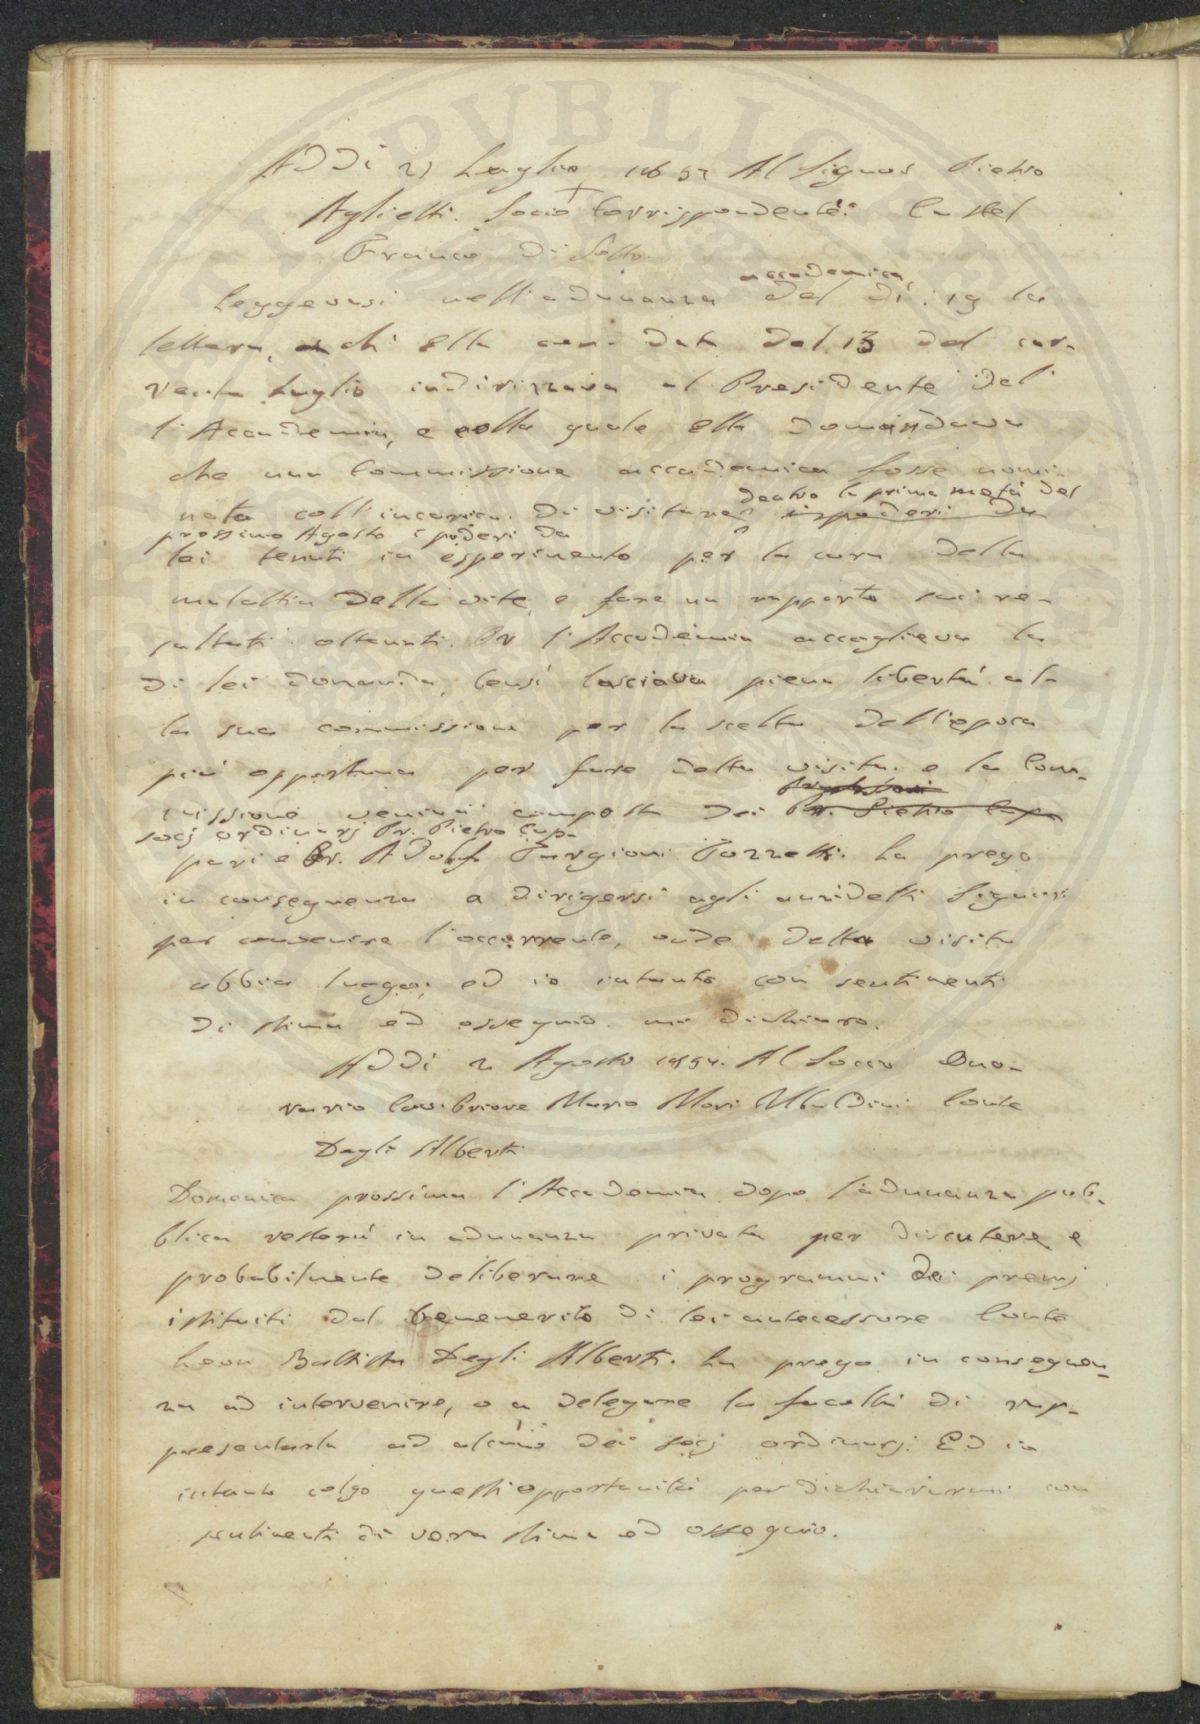 Addì 21 Luglio 1857 Al Signor Pietro
Aglietti. Socio Corrispondente: Castel
Franco di Sotto.
Leggevasi nell'adunanza accademica del dì 19 la
lettera, ch'Ella con data del 13 del cor-
rente Luglio indirizzava al Presidente del-
l'Accademia, e colla quale Ella domandava
che una Commissione accademica fosse nomi-
nata coll'incarico di visitare dentro la prima metà del
prossimo Agosto i poderi da
lei tenuti in esperimento per la cura della
malattia della vite, e fare un rapporto sui re-
sultati ottenuti. Or l'Accademia accoglieva la
di lei domanda, bensì lasciava piena libertà al-
la sua commissione per la scelta dell'epoca
più opportuna per fare detta visita. e la Com-
missione veniva composta dei
socj ordinarj Pr. Pietro Cup-
pari e Dr. Adolfo Targioni Tozzetti. La prego
in conseguenza a dirigersi agli anzidetti Signori
per convenire l'occorrente, onde detta visita
abbia luogo; ed io intanto con sentimenti
di stima ed ossequio mi dichiaro.
Addì 2 Agosto 1857. Al Socio Ono-
rario Cav. Priore Mario Mori Ubaldini Conte
Degli Alberti
Domenica prossima l'Accademia dopo l'adunanza pub-
blica resterà in adunanza privata per discutere e
probabilmente deliberare i programmi dei premj
istituiti dal benemerito di lei antecessore Conte
Leon Battista Degli Alberti. La prego in conseguen-
za ad intervenire, o a delegare la facoltà di rap-
presentarla ad alcuno dei socj ordinarj. Ed io
intanto colgo quest'opportunità per dichiararmi con
sentimenti di vera stima ed ossequio.